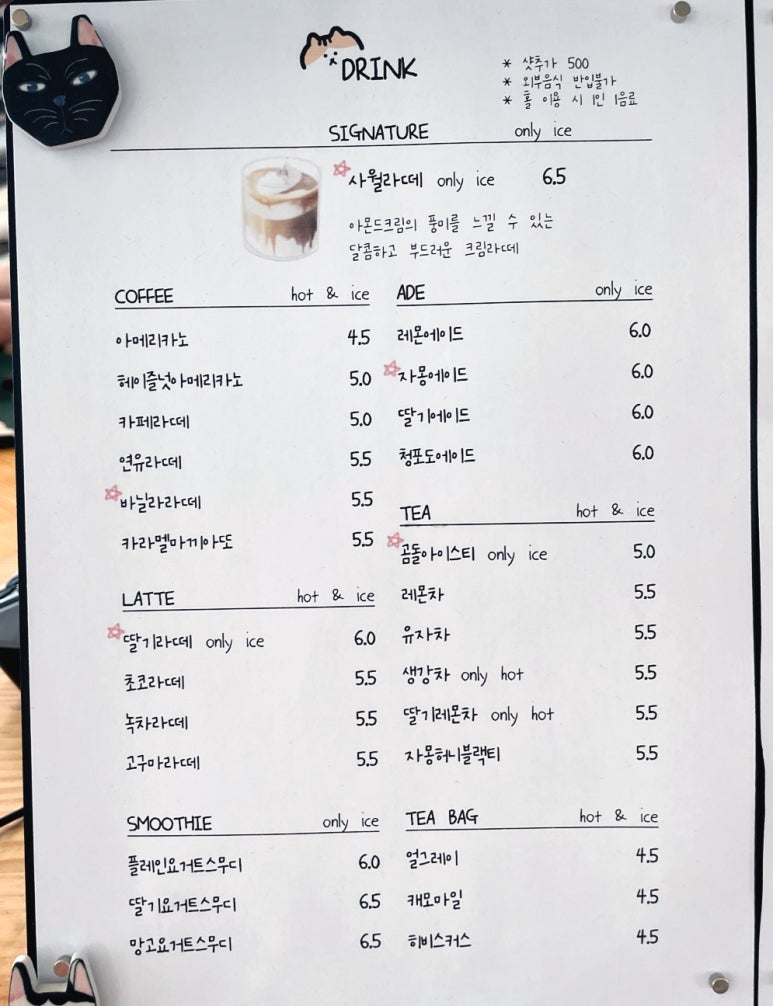 DRINK
* 샷추가 500
* 외부음식 반입불가
* 홀 이용 시 1인 1음료
SIGNATURE only ice
사월라떼 only ice 6.5
아몬드크림의 풍미를 느낄 수 있는
달콤하고 부드러운 크림라떼
COFFEE hot & ice
아메리카노 4.5
헤이즐넛아메리카노 5.0
카페라떼 5.0
연유라떼 5.5
바닐라라떼 5.5
카라멜마끼아또 5.5
LATTE hot & ice
딸기라떼 only ice 6.0
초코라떼 5.5
녹차라떼 5.5
고구마라떼 5.5
SMOOTHIE only ice
플레인요거트스무디 6.0
딸기요거트스무디 6.5
망고요거트스무디 6.5
ADE only ice
레몬에이드 6.0
자몽에이드 6.0
딸기에이드 6.0
청포도에이드 6.0
TEA hot & ice
곰돌아이스티 only ice 5.0
레몬차 5.5
유자차 5.5
생강차 only hot 5.5
딸기레몬차 only hot 5.5
자몽허니블랙티 5.5
TEA BAG hot & ice
얼그레이 4.5
캐모마일 4.5
히비스커스 4.5